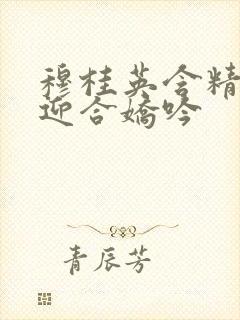 穆桂英含精
迎合娇吟
青辰芳